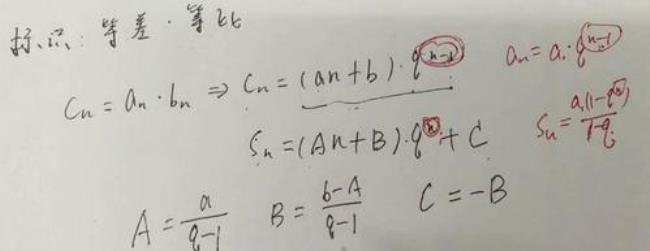 标识：等差·等比
Cn = an·bn ⇒ Cn = (an+b)·q^(n-1)  an = a1·q^(n-1)
Sn = (An+B)·q^n + C  Sn = a1(1-q^n)/(1-q)
A = a/(q-1)  B = (b-A)/(q-1)  C = -B